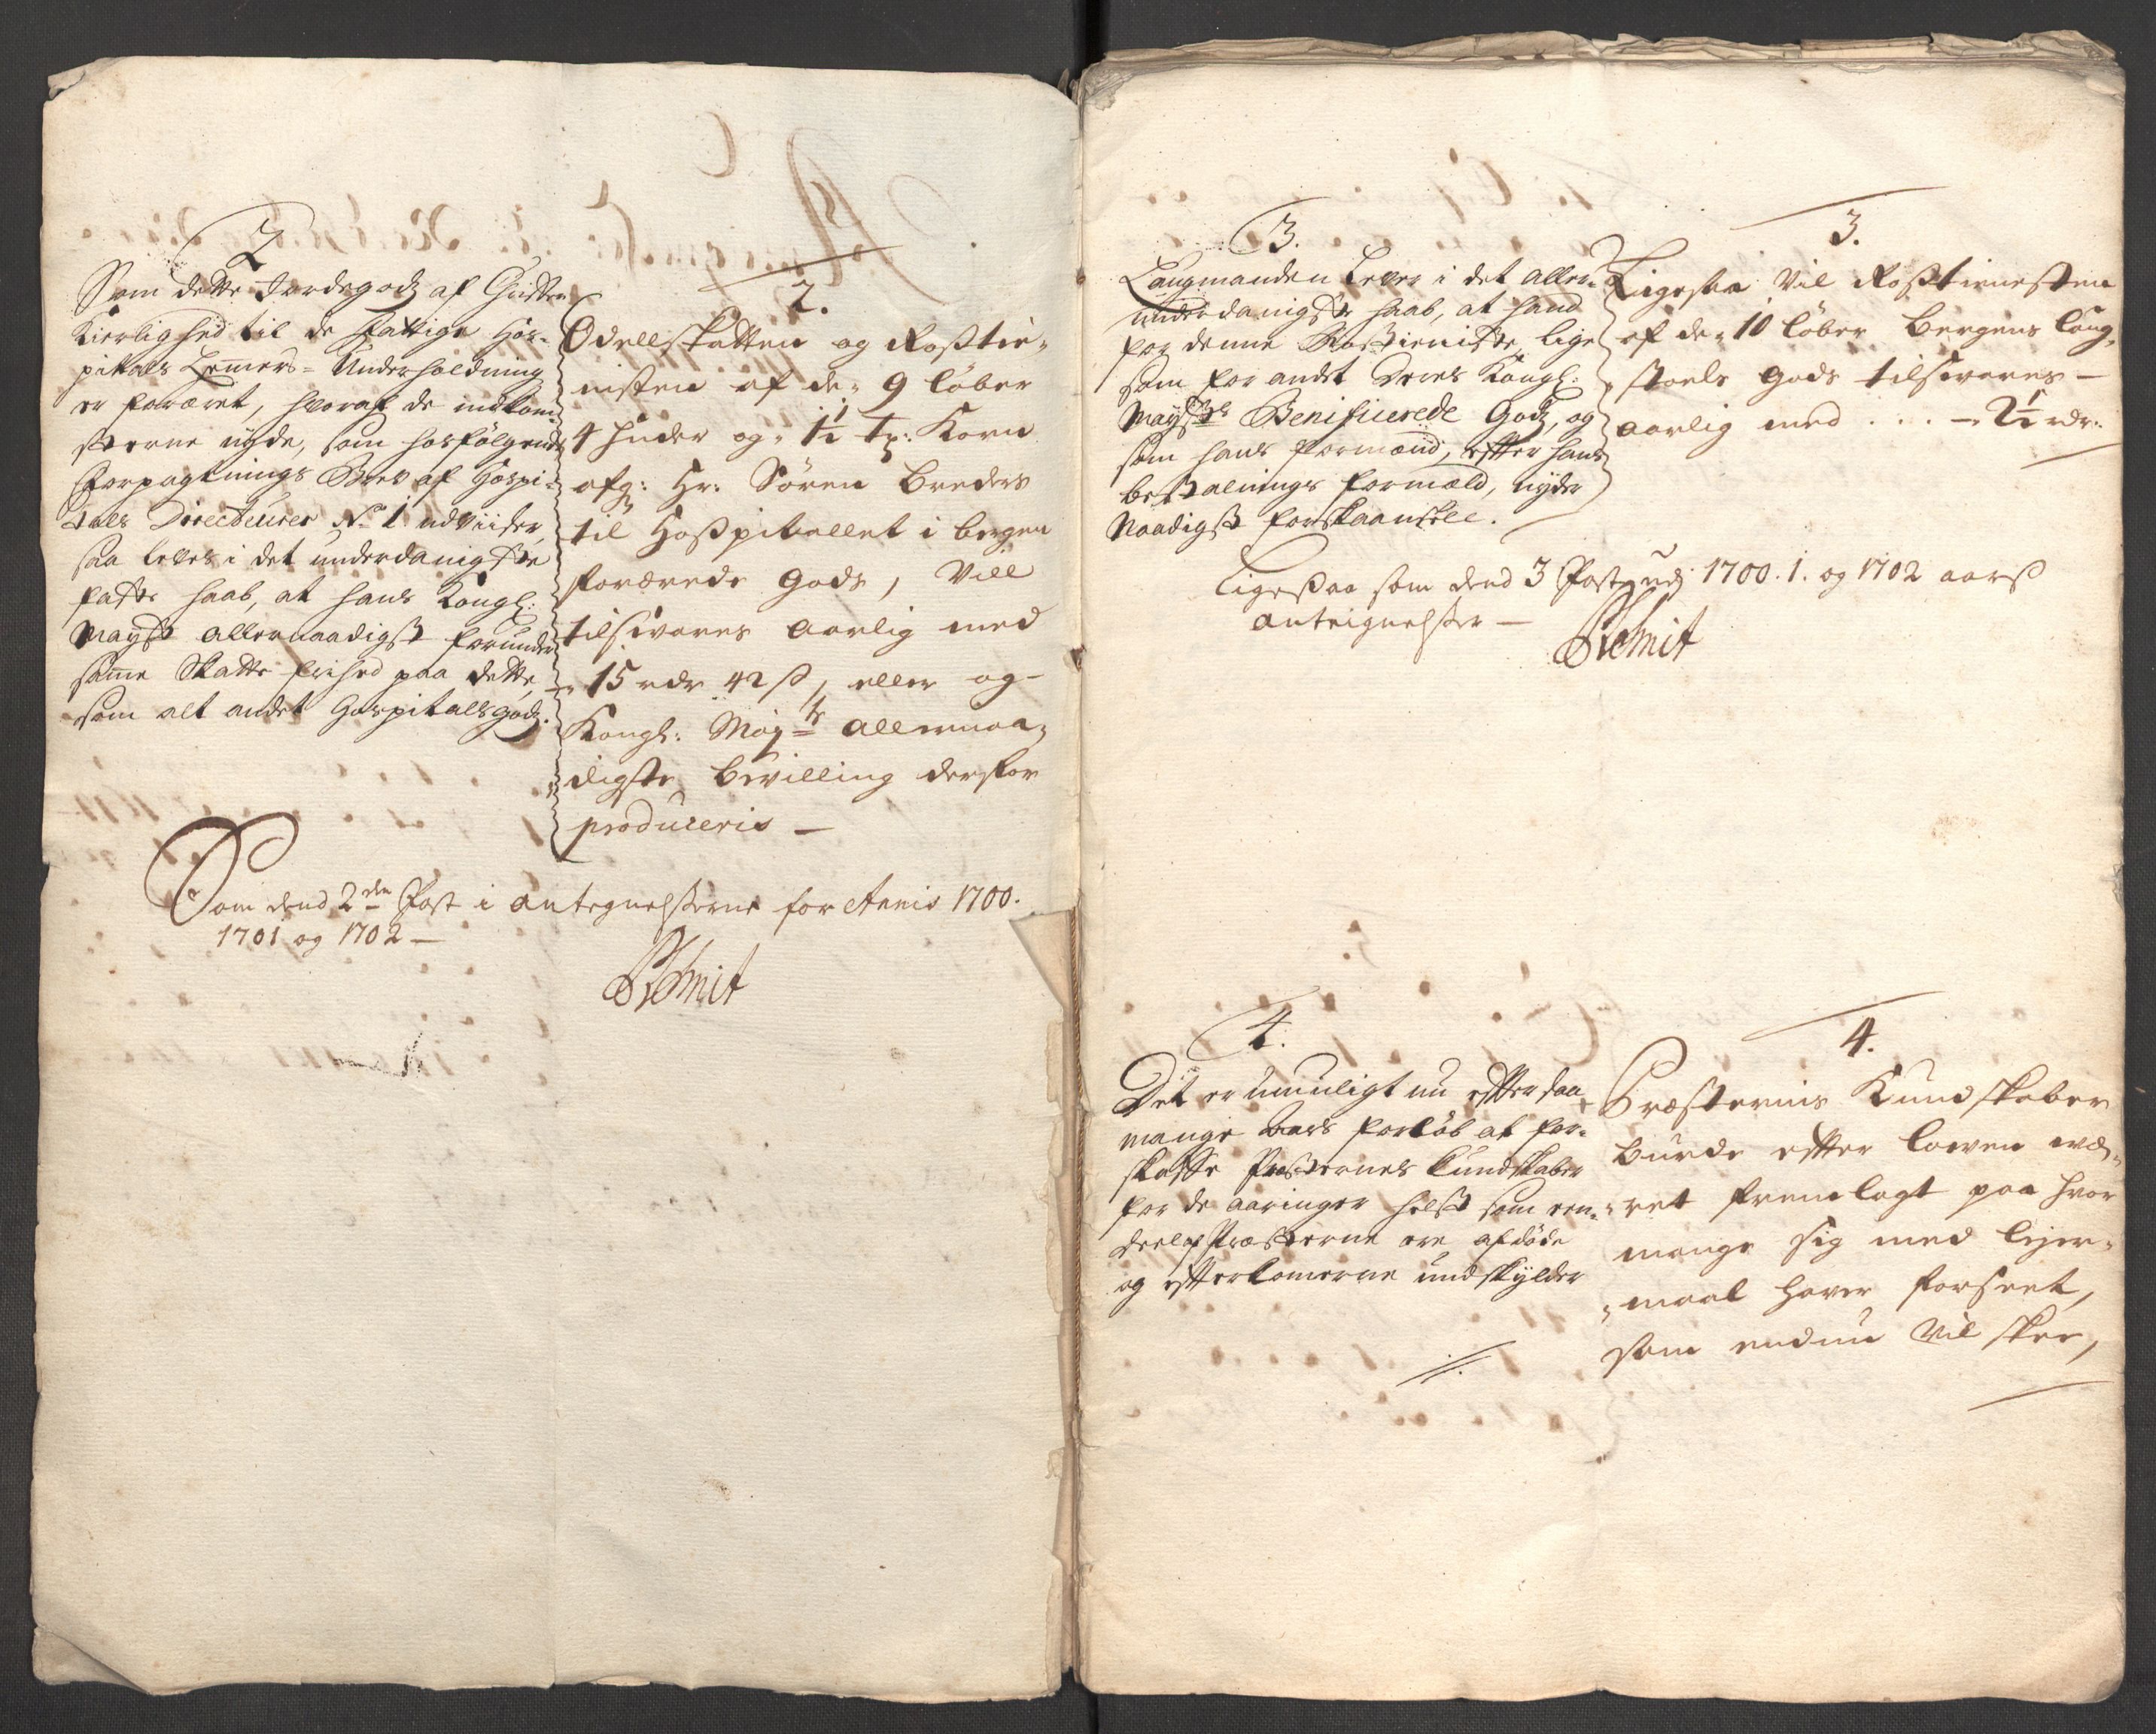 2
Som dette Jordegodz af Christen
Kierlighed til de fattige Hos-
pitals Lemmers Underholdning
er foræret, hvoraf de indkom
sterne nyde, som hosfølgende
Forpagtnings Brev af Hospi-
tals Directeurer No 1 udviiser,
saa leves i det underdanigste
faste haab, at hans Kongl:
Mayst allernaadigst forunder
samme Skatte frihed paa dette,
som alt andet Hospitalsgodz.
2.
Odellskatten og Rosstie,
nisten af de 9 løber
4 huder og 1½ tp: Korn
afg: Hr: Sören Breders
til Hosspitallet i bergen
forærede gods, Vill
tilsvares aarlig med
15 rdr 42 s, eller og
Kongl: May:ts allernaa,
digste bevilling derfor
produceris —
Som dend 2den Post i Antegnelsserne for Annis 1700.
1701 og 1702 —
Schmit
3.
Laugmanden lever i det aller-
underdanigste haab, at hand
for denne Rosstieniste, lige
som for andet Deres Kongl:
Mayts Benificerede Godz, og
som hans formænd, efter hans
bestalnings formæld, nyder
Naadigst forskaansell.
3.
Ligesaa Vil Rosstienesten
af de 10 løber Bergens laug,
stoels gods tilsvares —
aarlig med . . . — 2½ rdr.
Ligessaa som dend 3 Post udj 1700. 1. og 1702 aars
anteignelsser —
Schmit
4.
Det er umuligt nu efter saa
mange Aars forløb at for-
skaffe Præsternes kundskaber
for de aaringer helst som een-
deel af Præsterne ere afdøde
og efterkomerne undskylder
4.
Præsternis Kundskaber
burde efter lowen wæ-
ret fremlagt paa hvor
mange sig med lejer,
maal haver forseet,
som endnu vil skee,